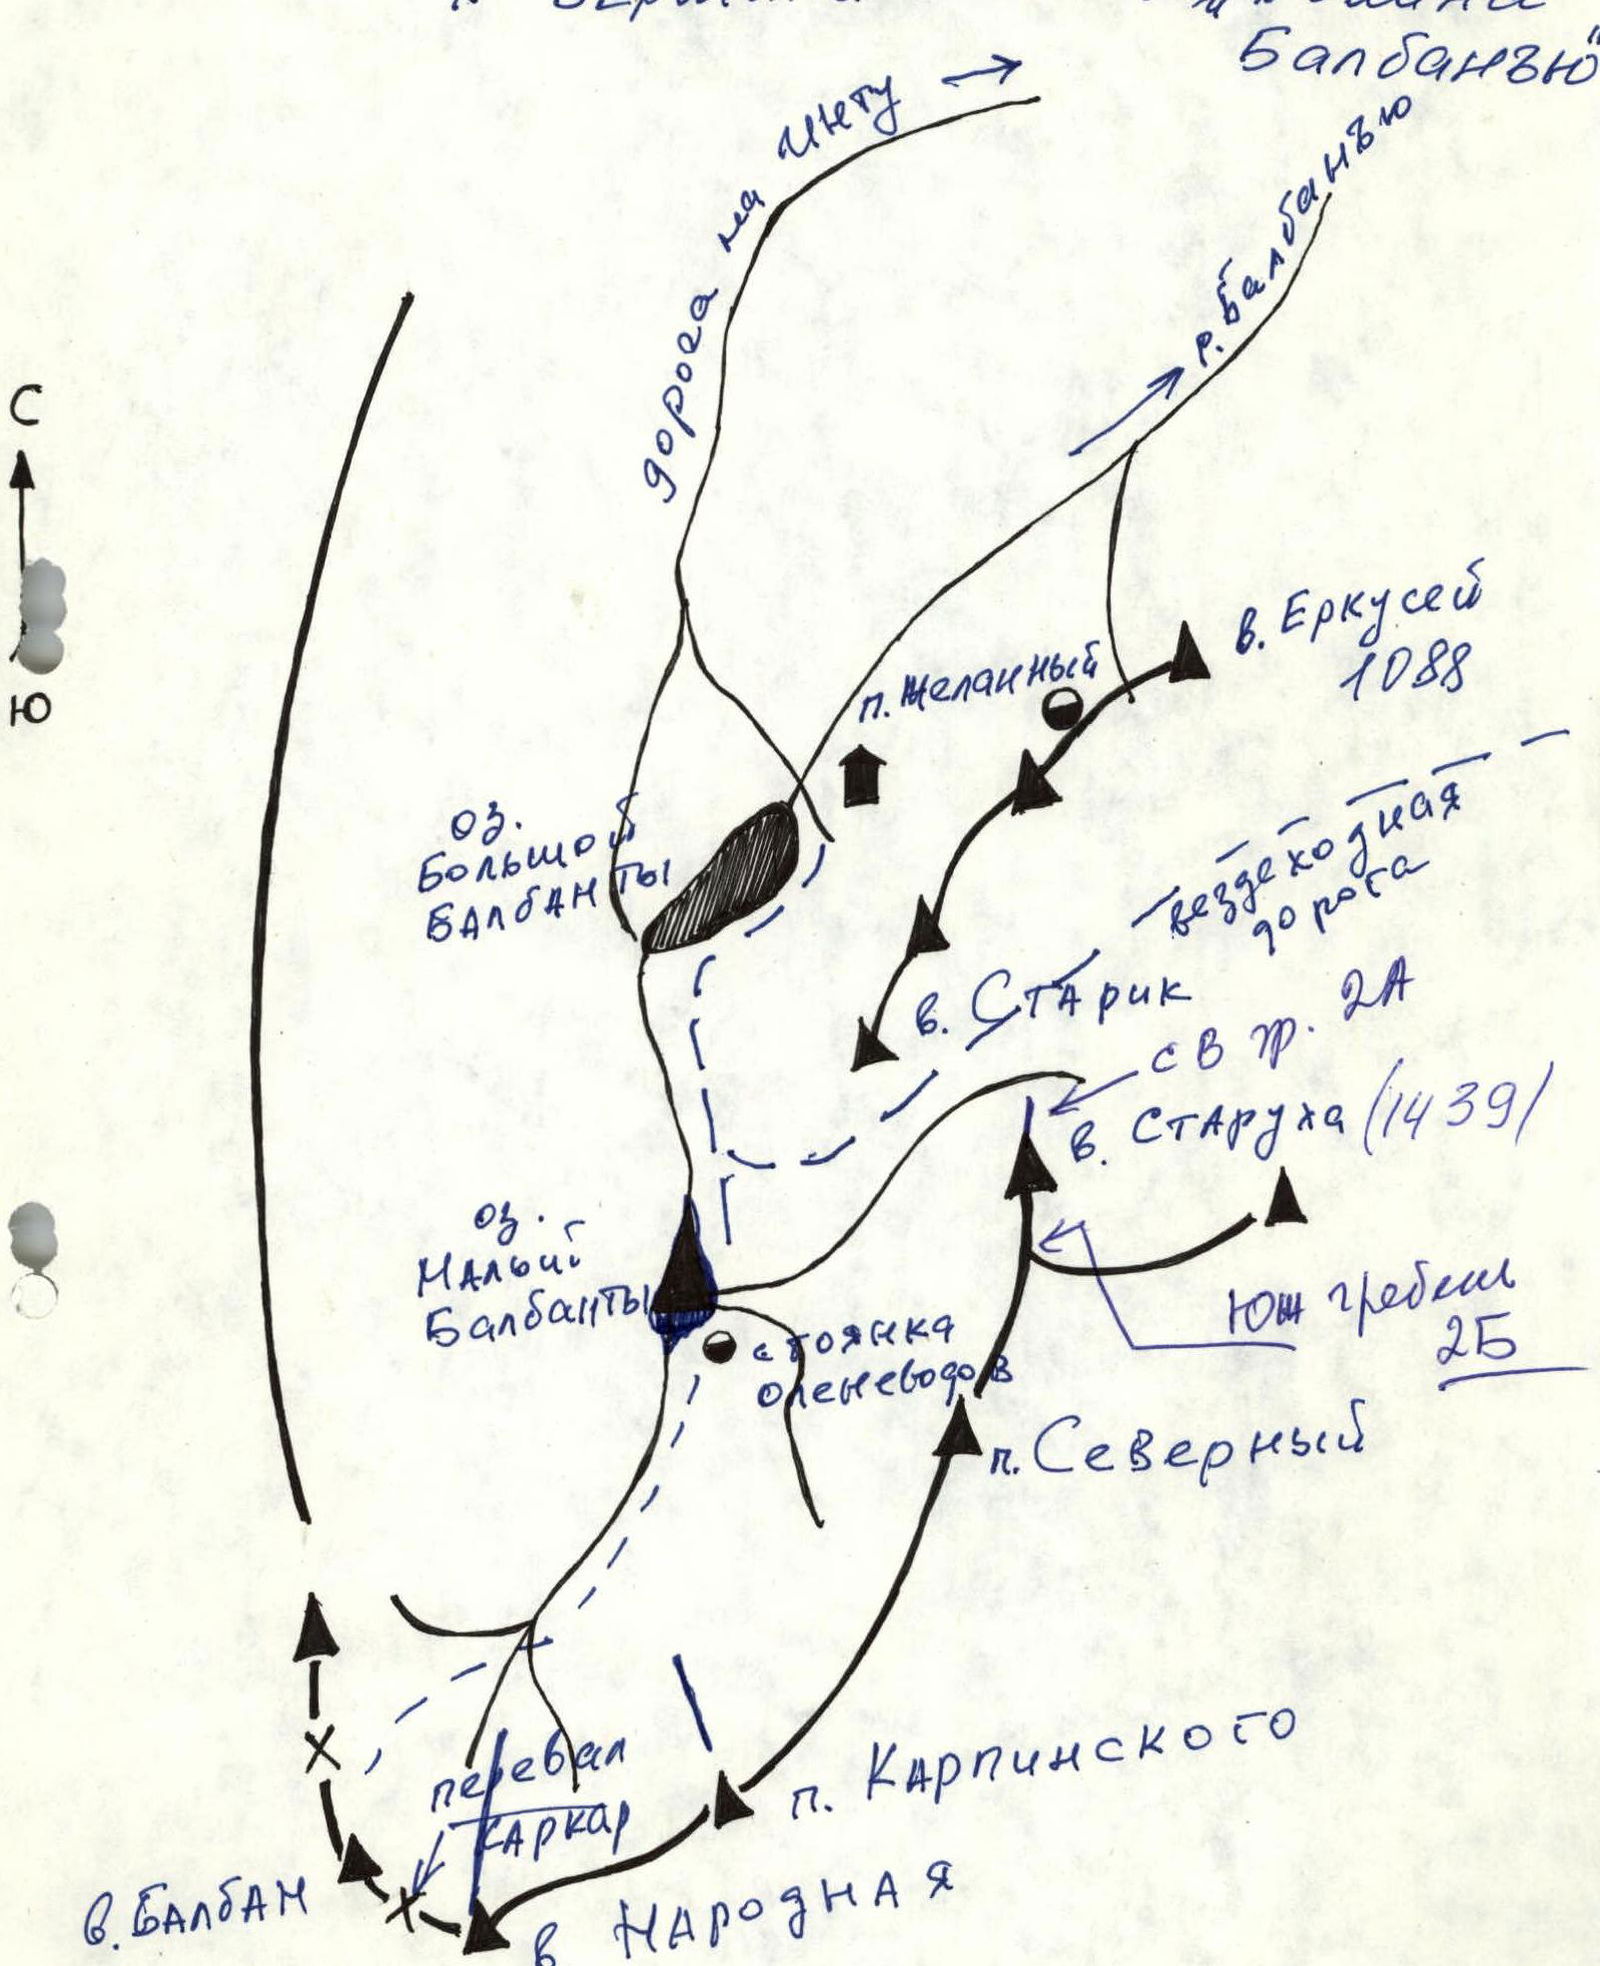 Балбанъю"
дорога на Инту
р. Балбанъю
С
Ю
в. Еркусей
1088
п. Желанный
оз.
Большой
Балбанты
вездеходная
дорога
в. Старик
св гр. 2А
в. Старуха (1439)
оз.
Малый
Балбанты
стоянка
оленеводов
Юж гребень
2Б
п. Северный
п. Карпинского
перевал
Каркар
в. Балбан
в Народная